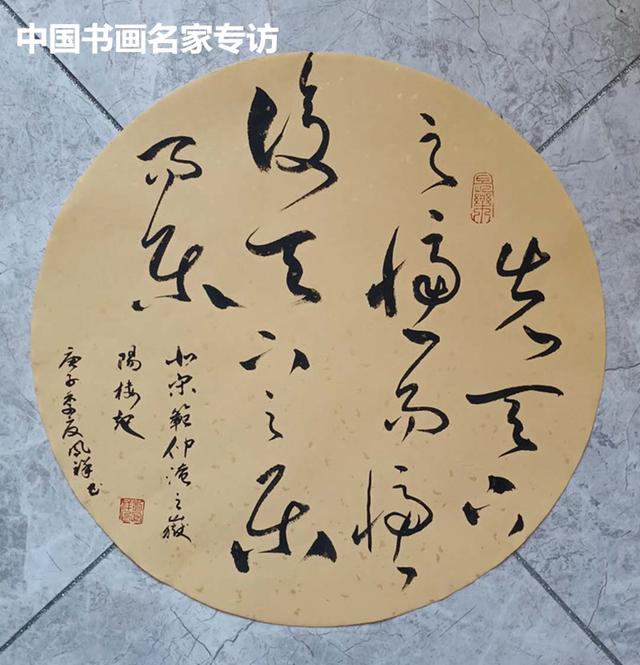 中国书画名家专访
先天下
之憂而憂
後天下之樂
而樂
北宋範仲淹之嶽
陽楼記
庚子季夏凤祥书